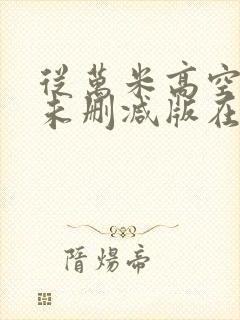 從萬米高空
未刪减版在
隋煬帝